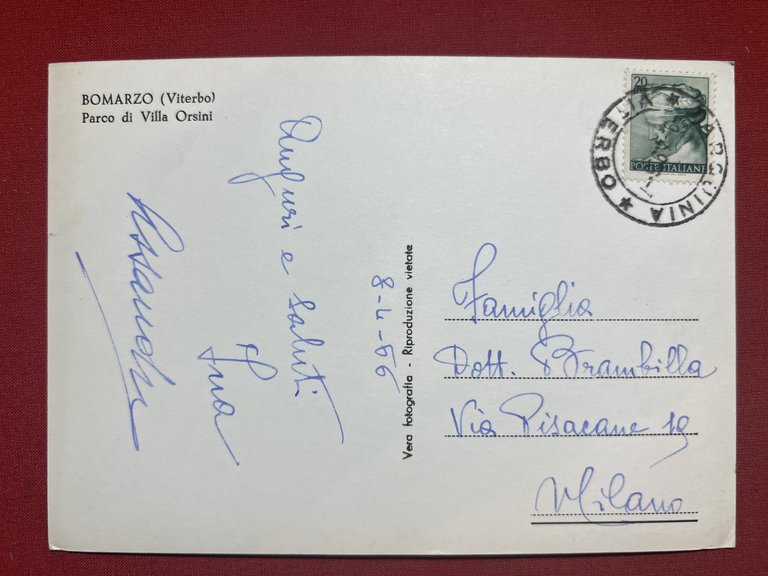 BOMARZO (Viterbo)
Parco di Villa Orsini
Auguri e saluti
8-4-66
Vera fotografia - Riproduzione vietate
20
POSTE ITALIANE
TARQUINIA
* VITERBO *
Famiglia
Dott. Brambilla
Via Pisacane 19
Milano